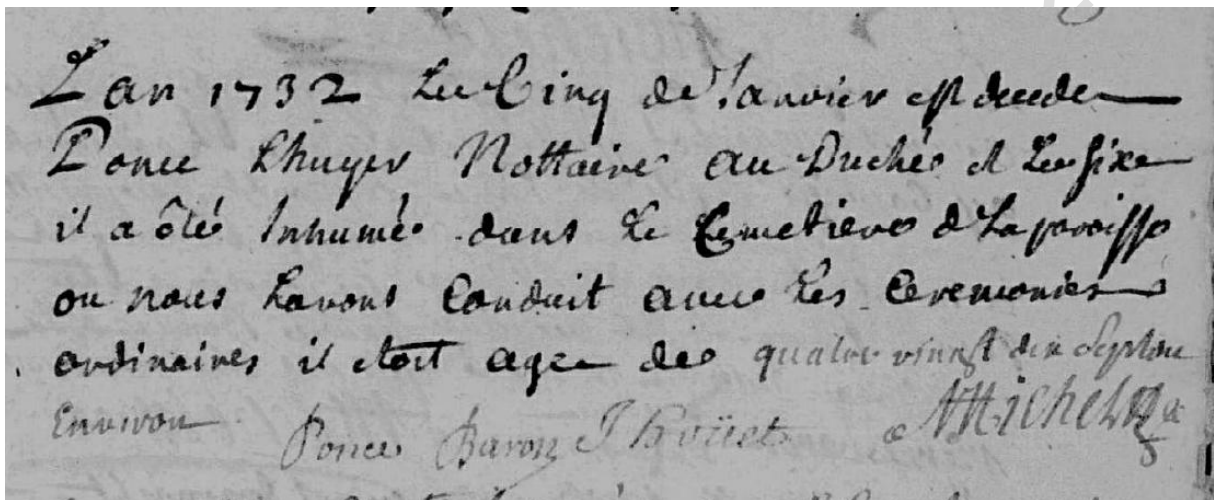 Lan 1732 Le Cinq de Janvier est decede
Ponce Lhuyer Nottaire au Duché et Le sixe
il a été Inhumé dans le Cemetiere d La paroisse
ou nous Lavons Conduit avec Les Ceremonies
ordinaires il etoit agee de quatre vingt dix sept
Environ Ponce Baron J Hoüet A Michel